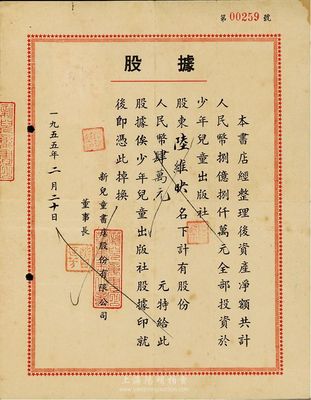 第 00259 號
股據
本書店經整理後資產淨額共計
人民幣捌億捌仟萬元全部投資於
少年兒童出版社
股東陸維 名下計有股份
人民幣肆萬元 元特給此
股據俟少年兒童出版社股據印就
後即憑此掉換
新兒童書店股份有限公司
董事長
一九五五年二月二十日